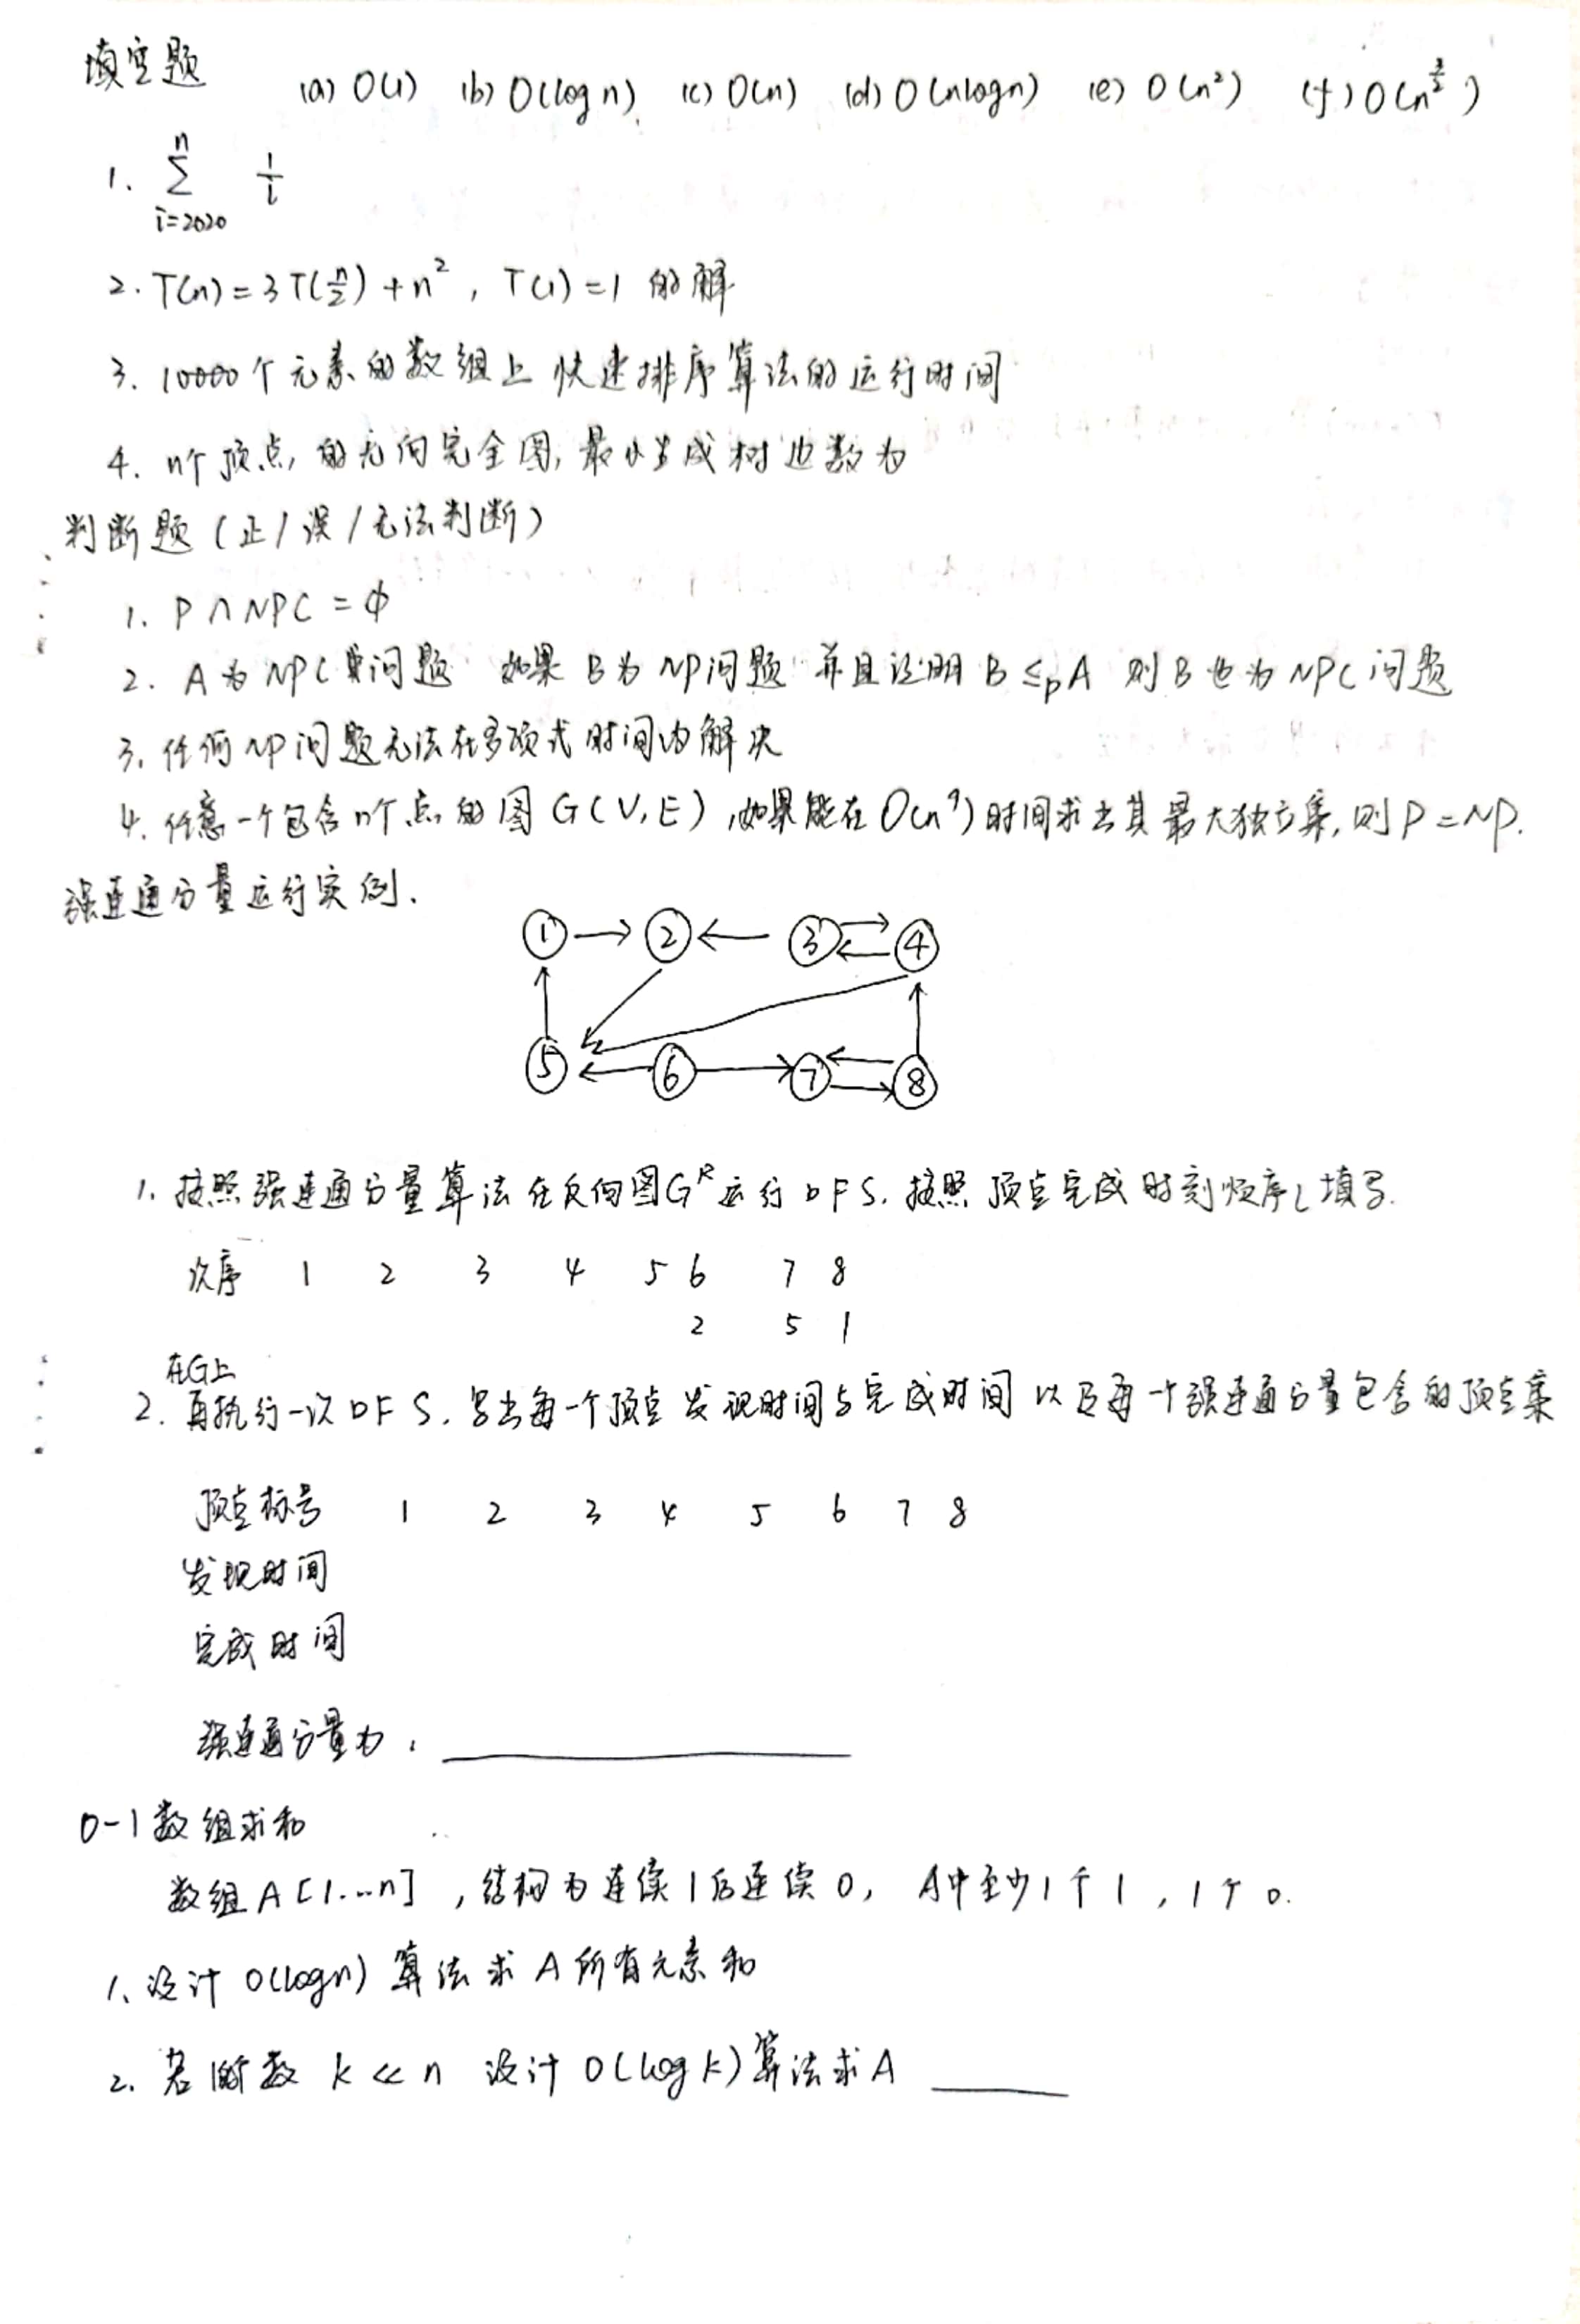 填空题
(a) O(1) (b) O(log n) (c) O(n) (d) O(nlogn) (e) O(n²) (f) O(n^{3/2})
1. \sum_{i=2020}^{n} \frac{1}{i}
2. T(n)=3T(\frac{n}{2})+n², T(1)=1 的解
3. 10000个元素的数组上快速排序算法的运行时间
4. n个顶点的无向完全图,最小生成树边数为
判断题(正/误/无法判断)
1. P∩NPC=ϕ
2. A为NPC问题 如果B为NP问题 并且证明B≤pA 则B也为NPC问题
3. 任何NP问题无法在多项式时间内解决
4. 任意一个包含n个点的图G(V,E),如果能在O(n⁹)时间求出其最大独立集,则P=NP.
强连通分量运行实例.
① ② ③ ④
⑤ ⑥ ⑦ ⑧
1. 按照强连通分量算法在反向图G^R运行DFS.按照顶点完成时刻顺序填写.
次序 1 2 3 4 5 6 7 8
2 5 1
在G上
2. 再执行一次DFS.写出每一个顶点发现时间与完成时间以及每一个强连通分量包含的顶点集
顶点标号 1 2 3 4 5 6 7 8
发现时间
完成时间
强连通分量为:
0-1数组求和
数组A[1...n],结构为连续1后连续0, A中至少1个1,1个0.
1、设计O(logn)算法求A所有元素和
2. 若 数 k≪n 设计O(logk)算法求A